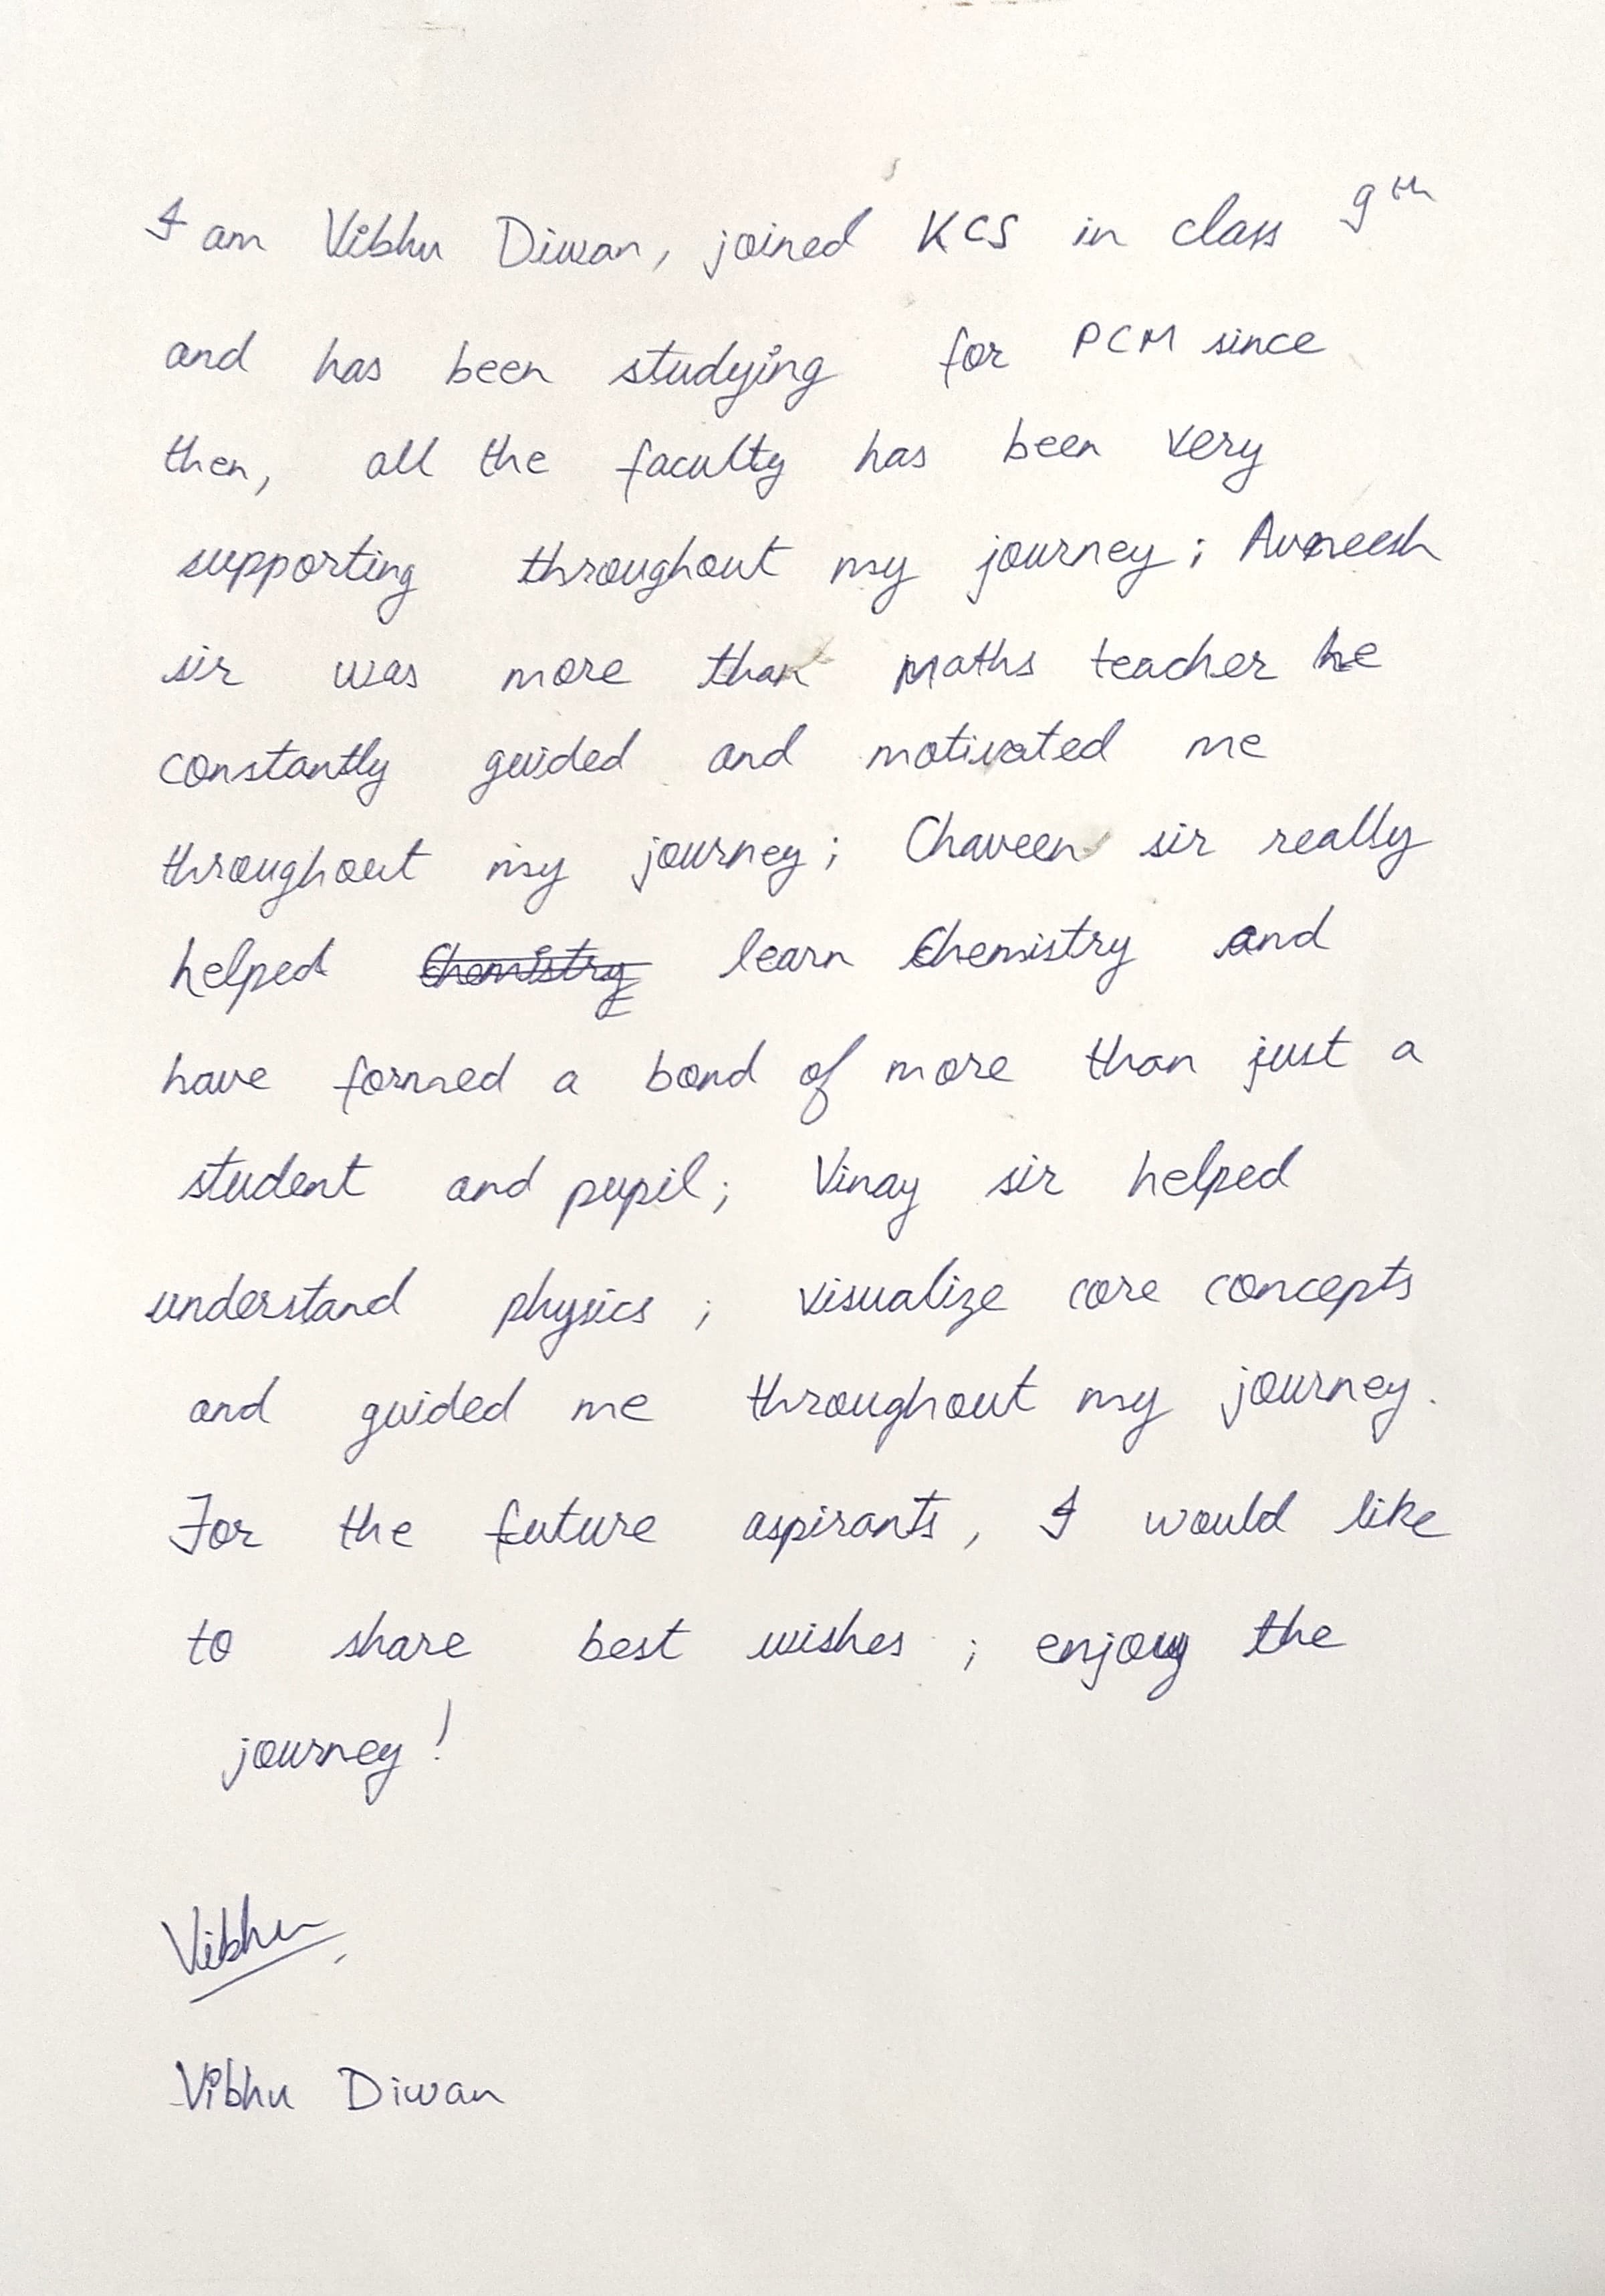 I am Vibhu Diwan, joined KCS in class 9th
and has been studying for PCM since
then, all the faculty has been very
supporting throughout my journey; Avneesh
sir was more than maths teacher he
constantly guided and motivated me
throughout my journey; Chaveen sir really
helped Chemistry learn Chemistry and
have formed a bond of more than just a
student and pupil; Vinay sir helped
understand physics ; visualize core concepts
and guided me throughout my journey.
For the future aspirants, I would like
to share best wishes ; enjoy the
journey!
Vibhu
Vibhu Diwan